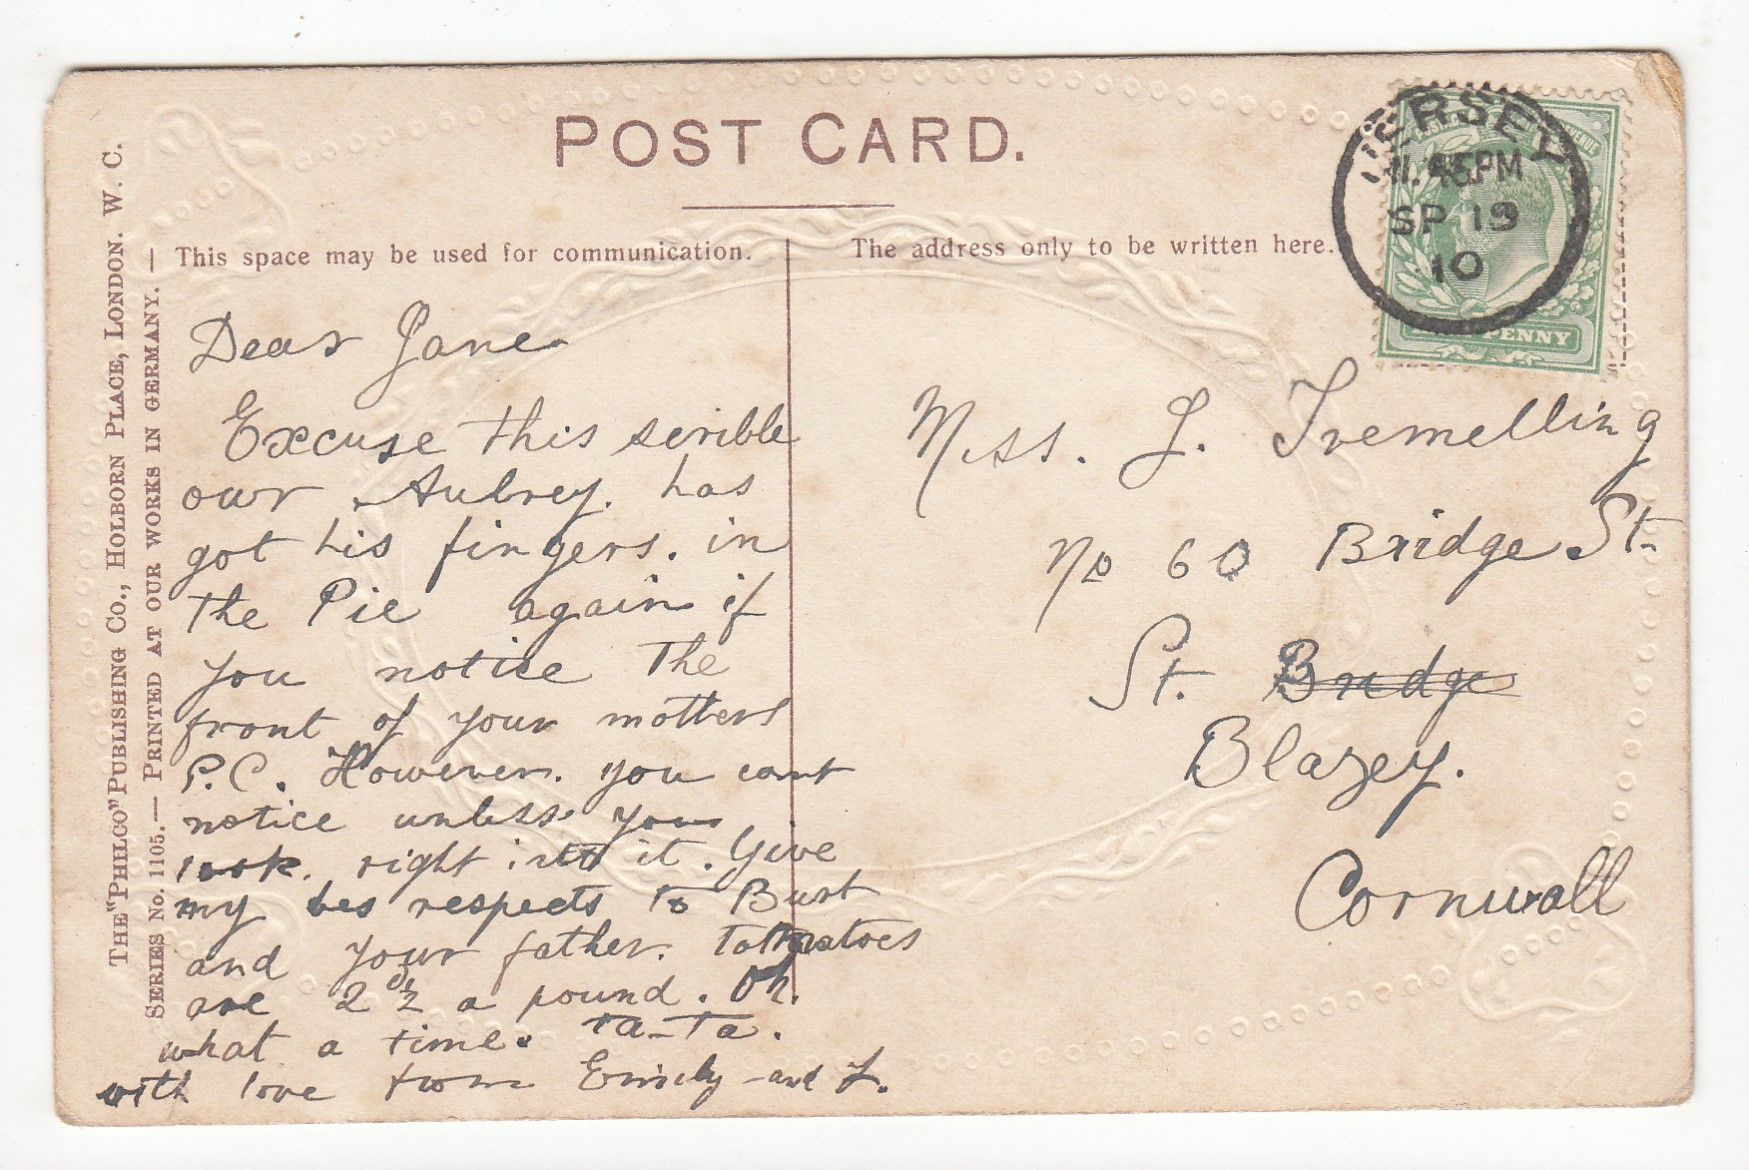 POST CARD.
This space may be used for communication.
The address only to be written here.
THE "PHILCO" PUBLISHING CO., HOLBORN PLACE, LONDON. W. C.
SERIES No. 1105. — PRINTED AT OUR WORKS IN GERMANY. —
JERSEY
45PM
SP 19
10
PENNY
Dear Jane
Excuse this scribble
our Aubrey. has
got his fingers. in
the Pie again if
you notice The
front of your mothers
P.C. However. you cant
notice unless you
look. right into it. Give
my bes respects to Burt
and your father. Tomatoes
are 2½ a pound. Oh.
what a time. ta-Ta.
with love from Emily and L.
Miss. J. Tremelling
No 60 Bridge St.
St. Bridge
Blazey.
Cornwall